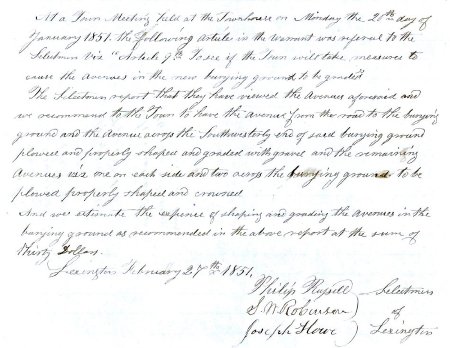 At a Town Meeting held at the Townhouse on Monday the 20th day of
January 1851. the following Article in the Warrant was referred to the
Selectmen Viz "Article 9th To see if the Town will take measures to
cause the avenues in the new burying ground to be graded"
The Selectmen report that they have viewed the Avenues aforesaid and
we recommend to the Town to have the avenue from the road to the burying
ground and the Avenue across the Southwesterly end of said burying ground
plowed and properly shaped and graded with gravel and the remaining
Avenues viz. one on each side and two across the burying ground to be
plowed properly shaped and crowned
And we estimate the expense of shaping and grading the avenues in the
burying ground as recommended in the above report at the sum of
Thirty Dollars.
Lexington February 27th 1851.
Philip Russell
S. W. Robinson
Joseph Howe
Selectmen
of
Lexington